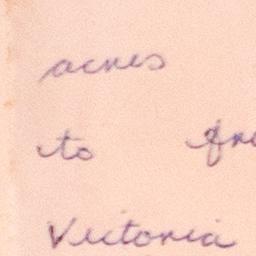 acres
to fre
Victoria